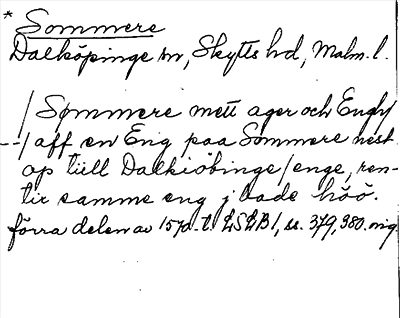 * Sommere
Dalköpinge sn, Skytts hd, Malm. l.
/ Sommere mett ager och Engh/
--/ aff en Eng paa Sommere nest
op tiill Dalkiöbinge/enge, ren-
tir samme eng j bade höö.
förra delen av 1570-t. LSLB 1, ss. 379, 380. mg